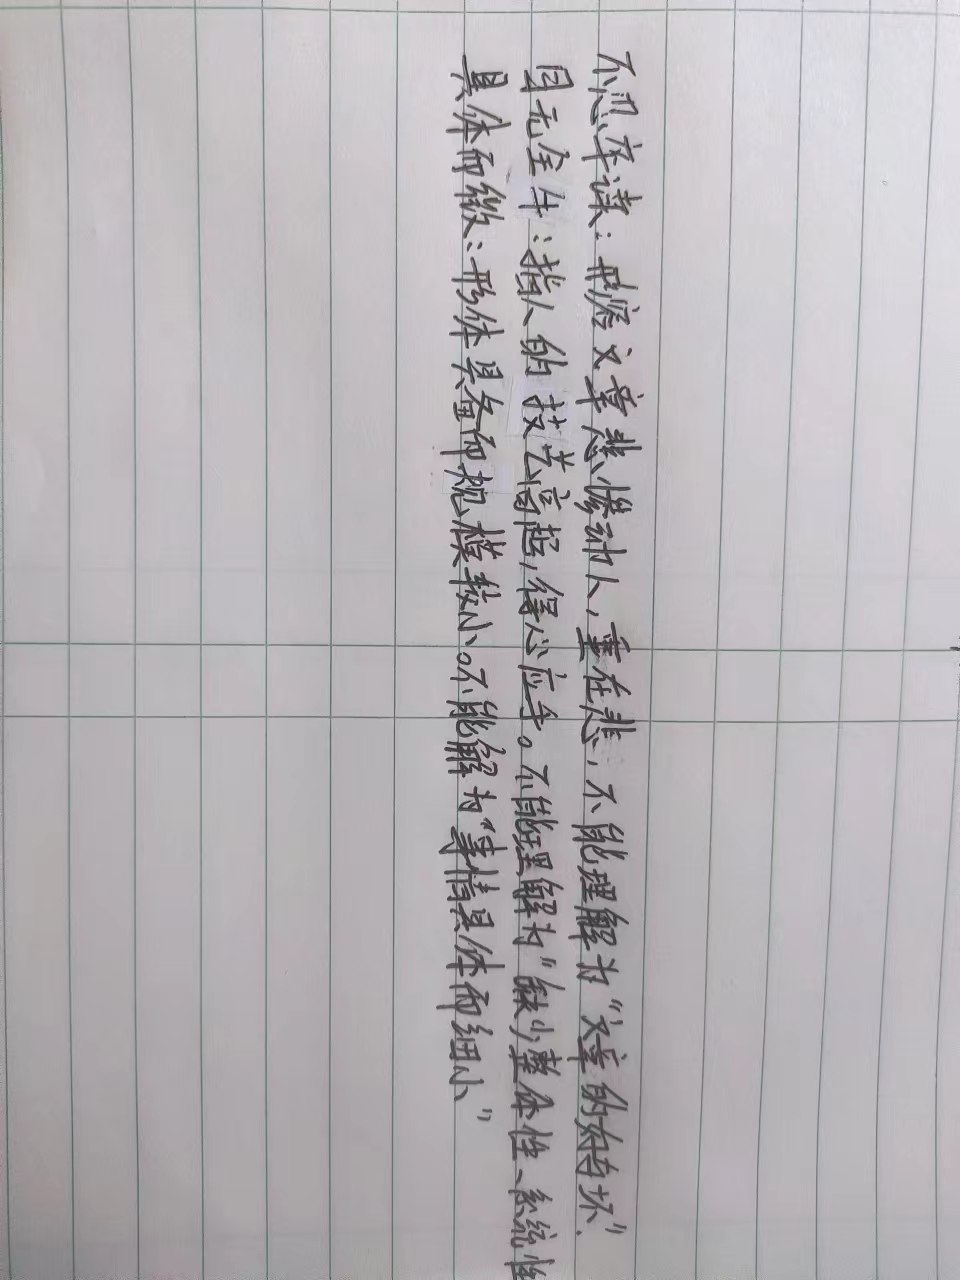 不忍卒读：形容文章悲惨动人，重在悲，不能理解为“文章的好与坏”.
目无全牛：指人的技艺高超，得心应手。不能理解为“缺少整体性、系统性
具体而微：形体具备而规模较小。不能解为“事情具体而细小”